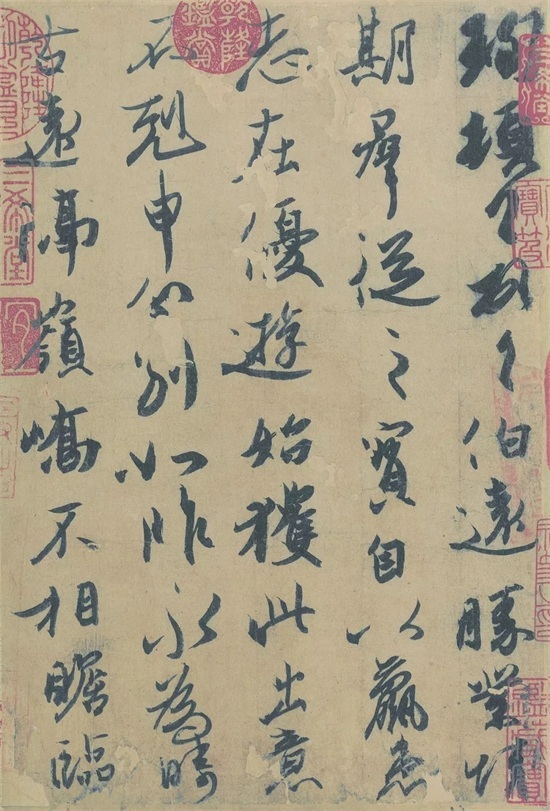 珣頓首頓首伯遠勝業情
期群從之寶自以羸患
志在優遊始獲此出意
不剋申分別如昨永為疇
古遠隔嶺嶠不相瞻臨
三希堂